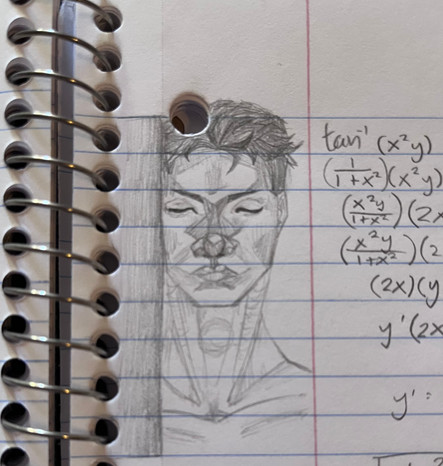 tan⁻¹(x²y)
(1/(1+x²))(x²y)
(x²y/(1+x²))(2x
(x²y/(1+x²))(2
(2x)(y
y'(2x
y' =